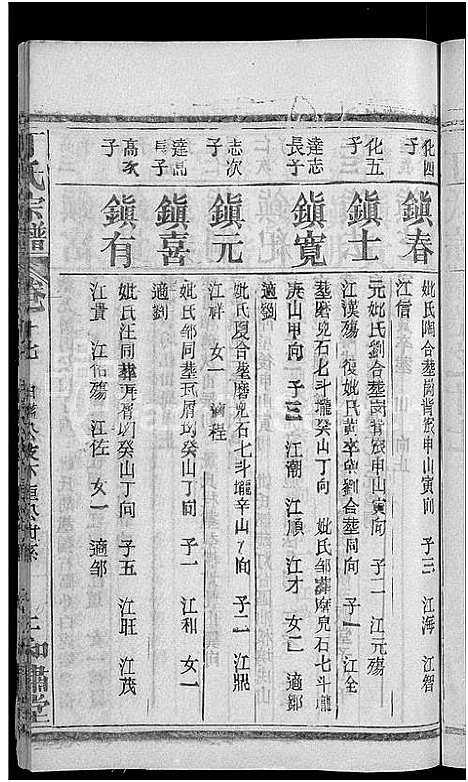 化四子
鎮春
妣氏陶合塟崗背旅申山寅向 子三 江海 江智
江信
化五子
鎮士
元妣氏劉合塟崗背旅申山寅向 子一 江元殤
江漢殤 復妣氏黃卒與劉合塟同向 子一 江全
達志長子
鎮寬
塟磨兒石七斗壠癸山丁向 妣氏邹葬磨兒石七斗壠
庚山甲向 子三 江潮 江順 江才 女一 適鄒
適劉
志次子
鎮元
妣氏夏合塟磨兒石七斗壠辛山 向 子二 江鼎
江祥 女一 適程
達高長子
鎮喜
妣氏邹同塟瓦屑塆癸山丁向 子一 江和 女一
適劉
高次子
鎮有
妣氏汪同塟瓦屑塆癸山丁向 子五 江旺 江茂
江貴 江佑殤 江佐 女一 適邹
丁氏宗譜
卷十七